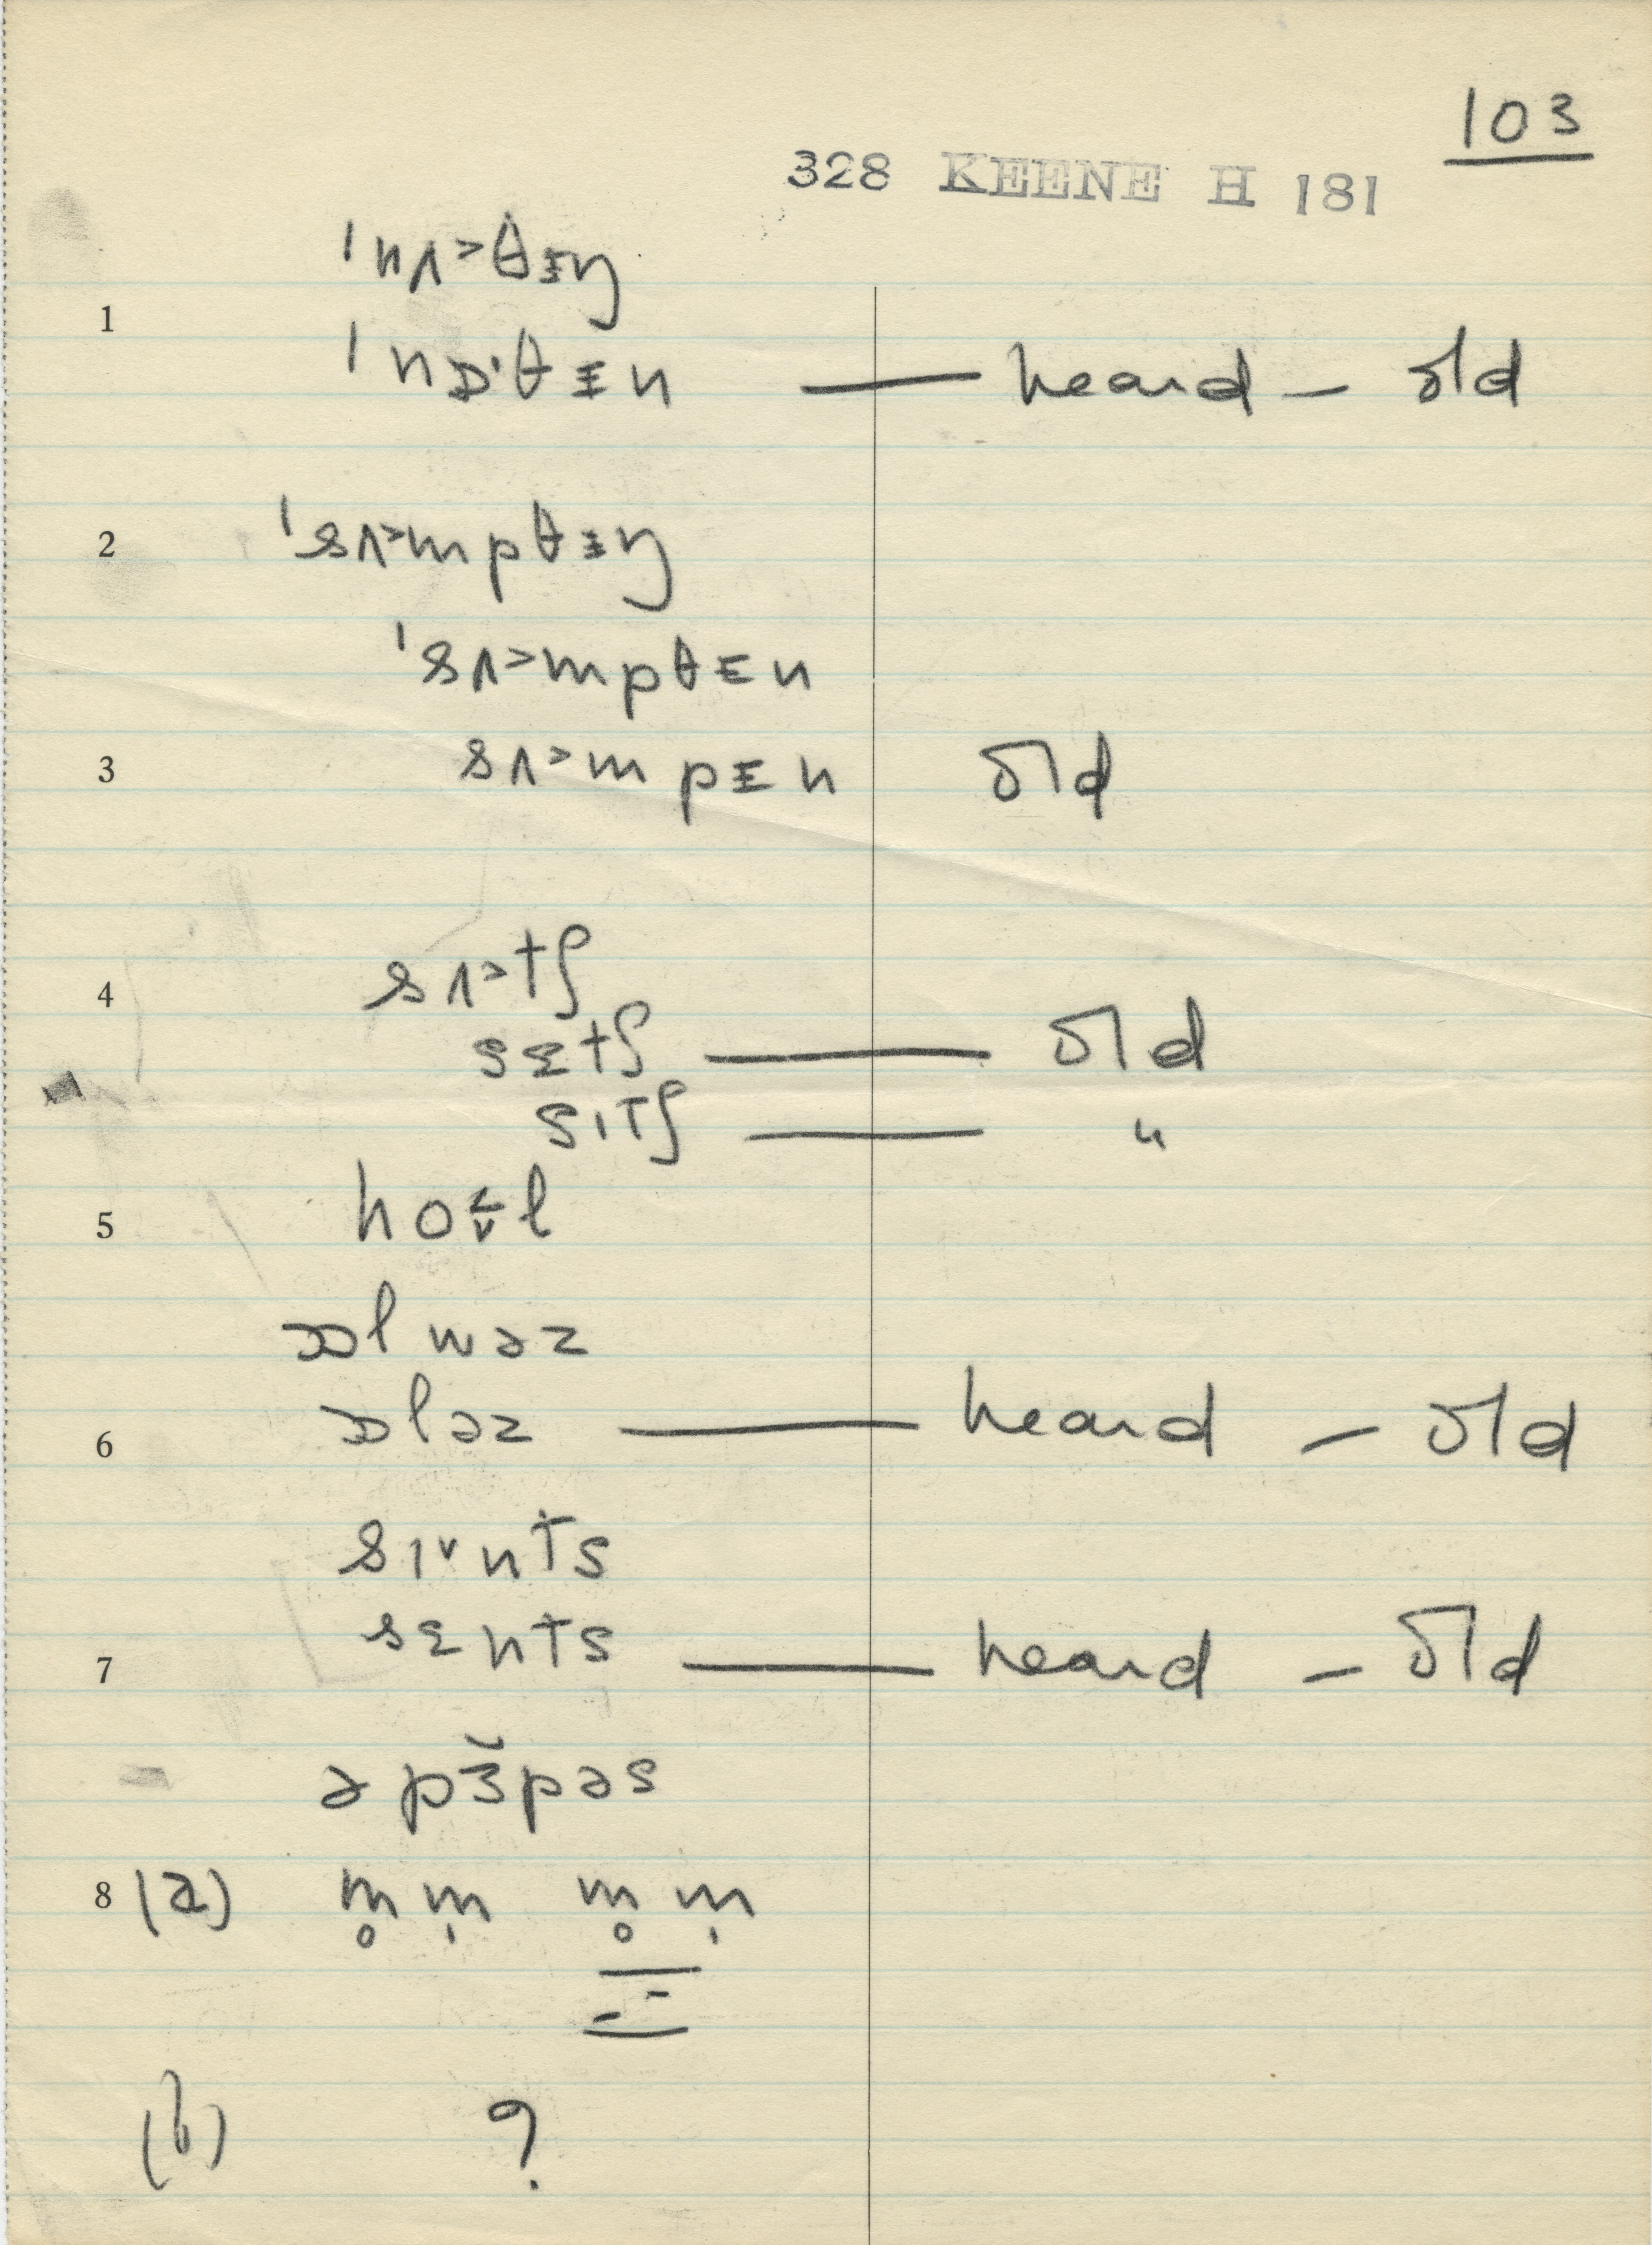 103
328 KEENE H 181
ˈnʌ˃θɪŋ
1
ˈnɒ·θɪn — heard – old
2 ˈsʌ˃mpθɪŋ
ˈsʌ˃mpθɪn
3 sʌ˃mpɪn old
4 sʌ˃tʃ
sɛtʃ — old
sɪtʃ — "
5 hoʊ̬˂l
ɔlwəz
6 ɔləz — heard – old
sɪ˅nts
7 sɛnts — heard – old
əpɜ̆pəs
8 (a) m̥m̩ m̥m̩
(b) ?